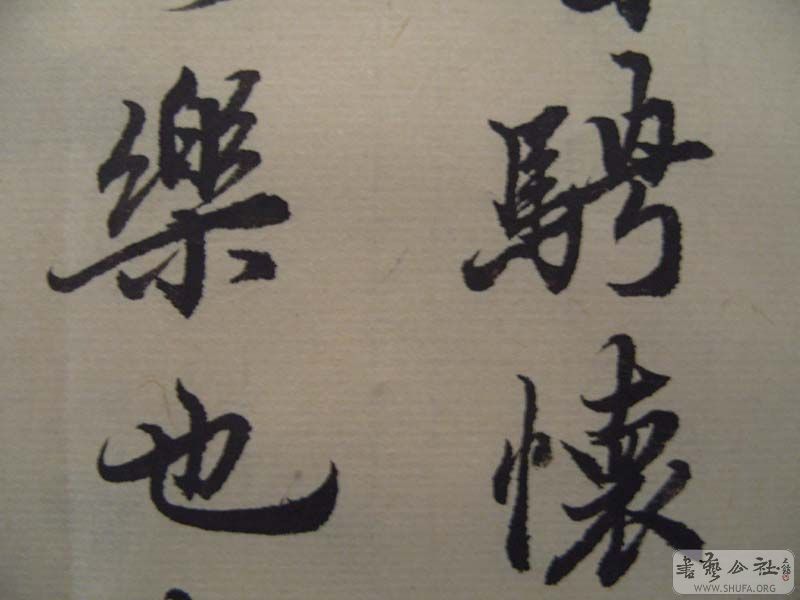 騁懷
樂也
書藝公社
WWW.SHUFA.ORG